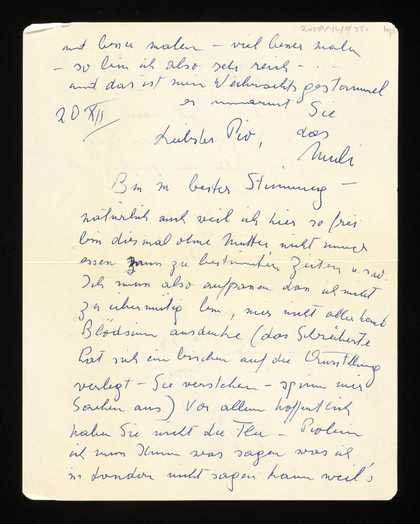 und besser malen – viel besser malen
– so bin ich also sehr reich - . -
und das ist mein Weihnachtsgestammel
es umarmt Sie
20 XII das
Liebster Pio, Muli
Bin in bester Stimmung –
natürlich auch weil ich hier so frei
bin diesmal ohne Mutter nicht immer
essen zu bestimmten Zeiten u.s.w.
Ich muss also aufpassen dass ich nicht
zu übermütig bin, mir nicht allerhand
Blödsinn ausdenke (das
hat sich ein bischen auf die Vorstellung
verlegt – Sie verstehen – spinn mir
Sachen aus) Vor allem hoffentlich
haben Sie nicht die Flu –
ich muss Ihnen was sagen was ich
in London nicht sagen kann weil's